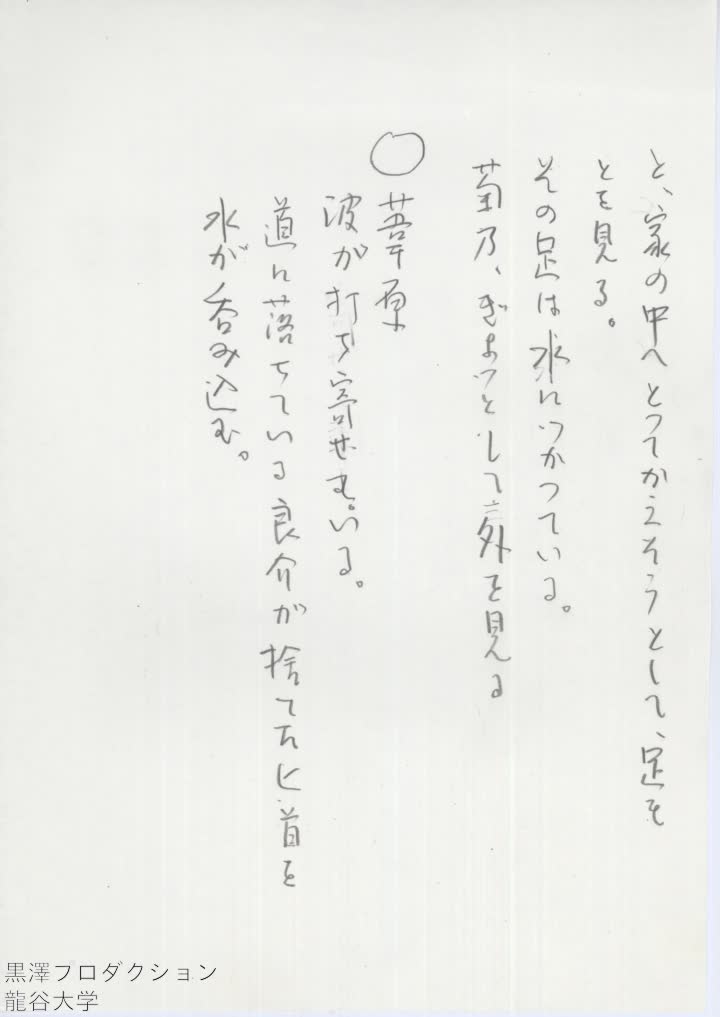 と、家の中へとってかえそうとして、足も
とを見る。
その足は水につかっている。
菊乃、ぎょっとして外を見る
○葦原
波が打ち寄せている。
道に落ちている良介が捨てた匕首を
水が呑み込む。
黒澤フロダクション
龍谷大学